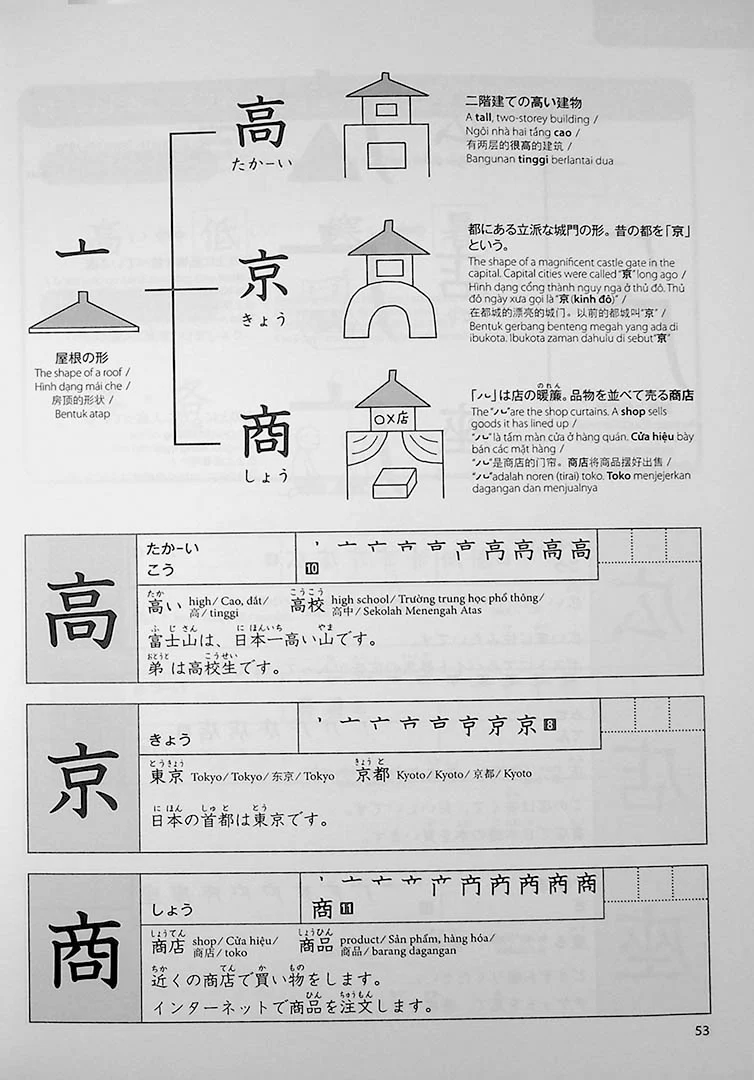 亠
屋根の形
The shape of a roof /
Hình dạng mái che /
房顶的形状 /
Bentuk atap
高
たかーい
二階建ての高い建物
A tall, two-storey building /
Ngôi nhà hai tầng cao /
有两层的很高的建筑 /
Bangunan tinggi berlantai dua
京
きょう
都にある立派な城門の形。昔の都を「京」
という。
The shape of a magnificent castle gate in the
capital. Capital cities were called "京" long ago /
Hình dạng cổng thành nguy nga ở thủ đô. Thủ
đô ngày xưa gọi là "京 (kinh đô)" /
在都城的漂亮的城门。以前的都城叫"京" /
Bentuk gerbang benteng megah yang ada di
ibukota. Ibukota zaman dahulu di sebut"京"
商
しょう
○×店
のれん
「ハ」は店の暖簾。品物を並べて売る商店
The "ハ"are the shop curtains. A shop sells
goods it has lined up /
"ハ"là tấm màn cửa ở hàng quán. Cửa hiệu bày
bán các mặt hàng /
"ハ"是商店的门帘。商店将商品摆好出售 /
"ハ"adalah noren (tirai) toko. Toko menjejerkan
dagangan dan menjualnya
高
たかーい
こう
10
高 高 高 高
たか こうこう
高い high / Cao, đắt / 高 / tinggi
高校 high school / Trường trung học phổ thông / 高中 / Sekolah Menengah Atas
ふ じ さん に ほんいち やま
富士山は、日本一高い山です。
おとうと こうこうせい
弟は高校生です。
京
きょう
京 8
とうきょう きょう と
東京 Tokyo / Tokyo / 东京 / Tokyo 京都 Kyoto / Kyoto / 京都 / Kyoto
に ほん しゅ と とう
日本の首都は東京です。
商
しょう
商 11
しょうてん しょうひん
商店 shop / Cửa hiệu / 商店 / toko
商品 product / Sản phẩm, hàng hóa / 商品 / barang dagangan
ちか てん か もの
近くの商店で買い物をします。
ひん ちゅうもん
インターネットで商品を注文します。
53